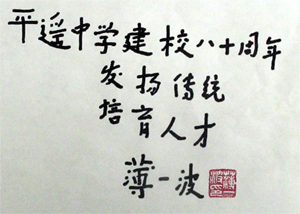 平遥中学建校八十周年
发扬传统
培育人才
薄一波